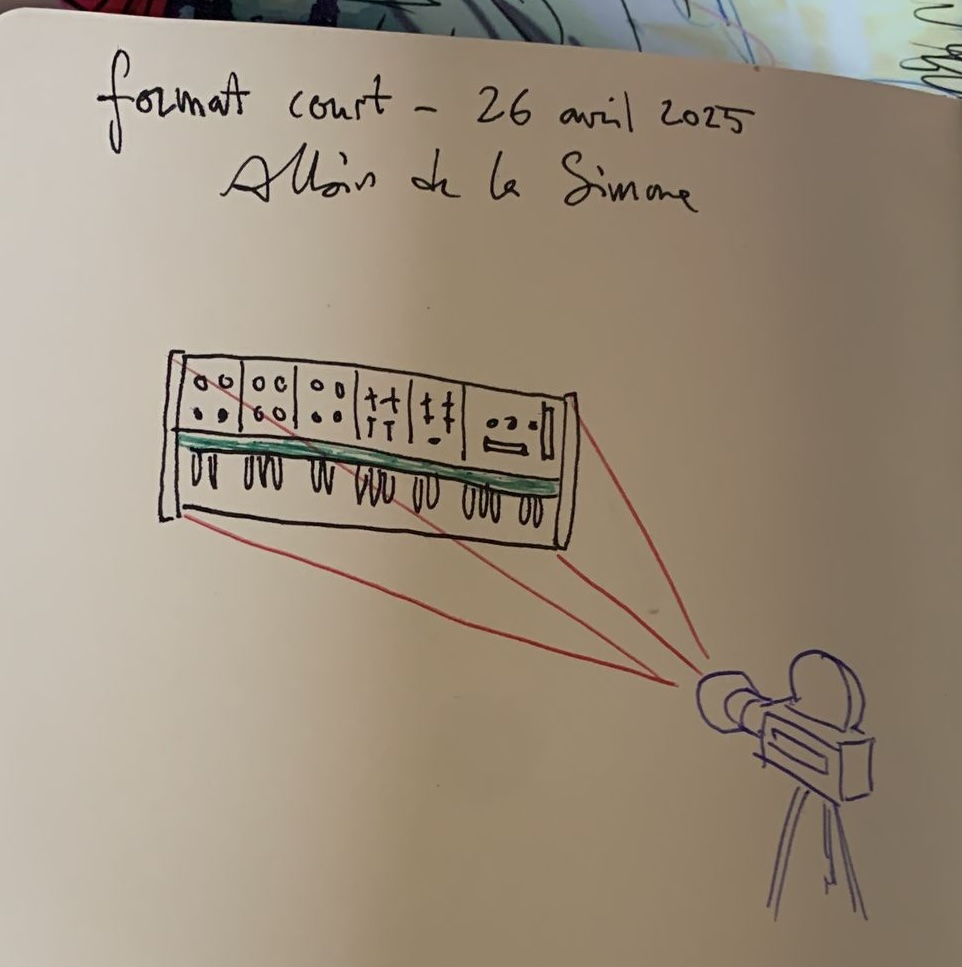 format court - 26 avril 2025
Albin de la Simone